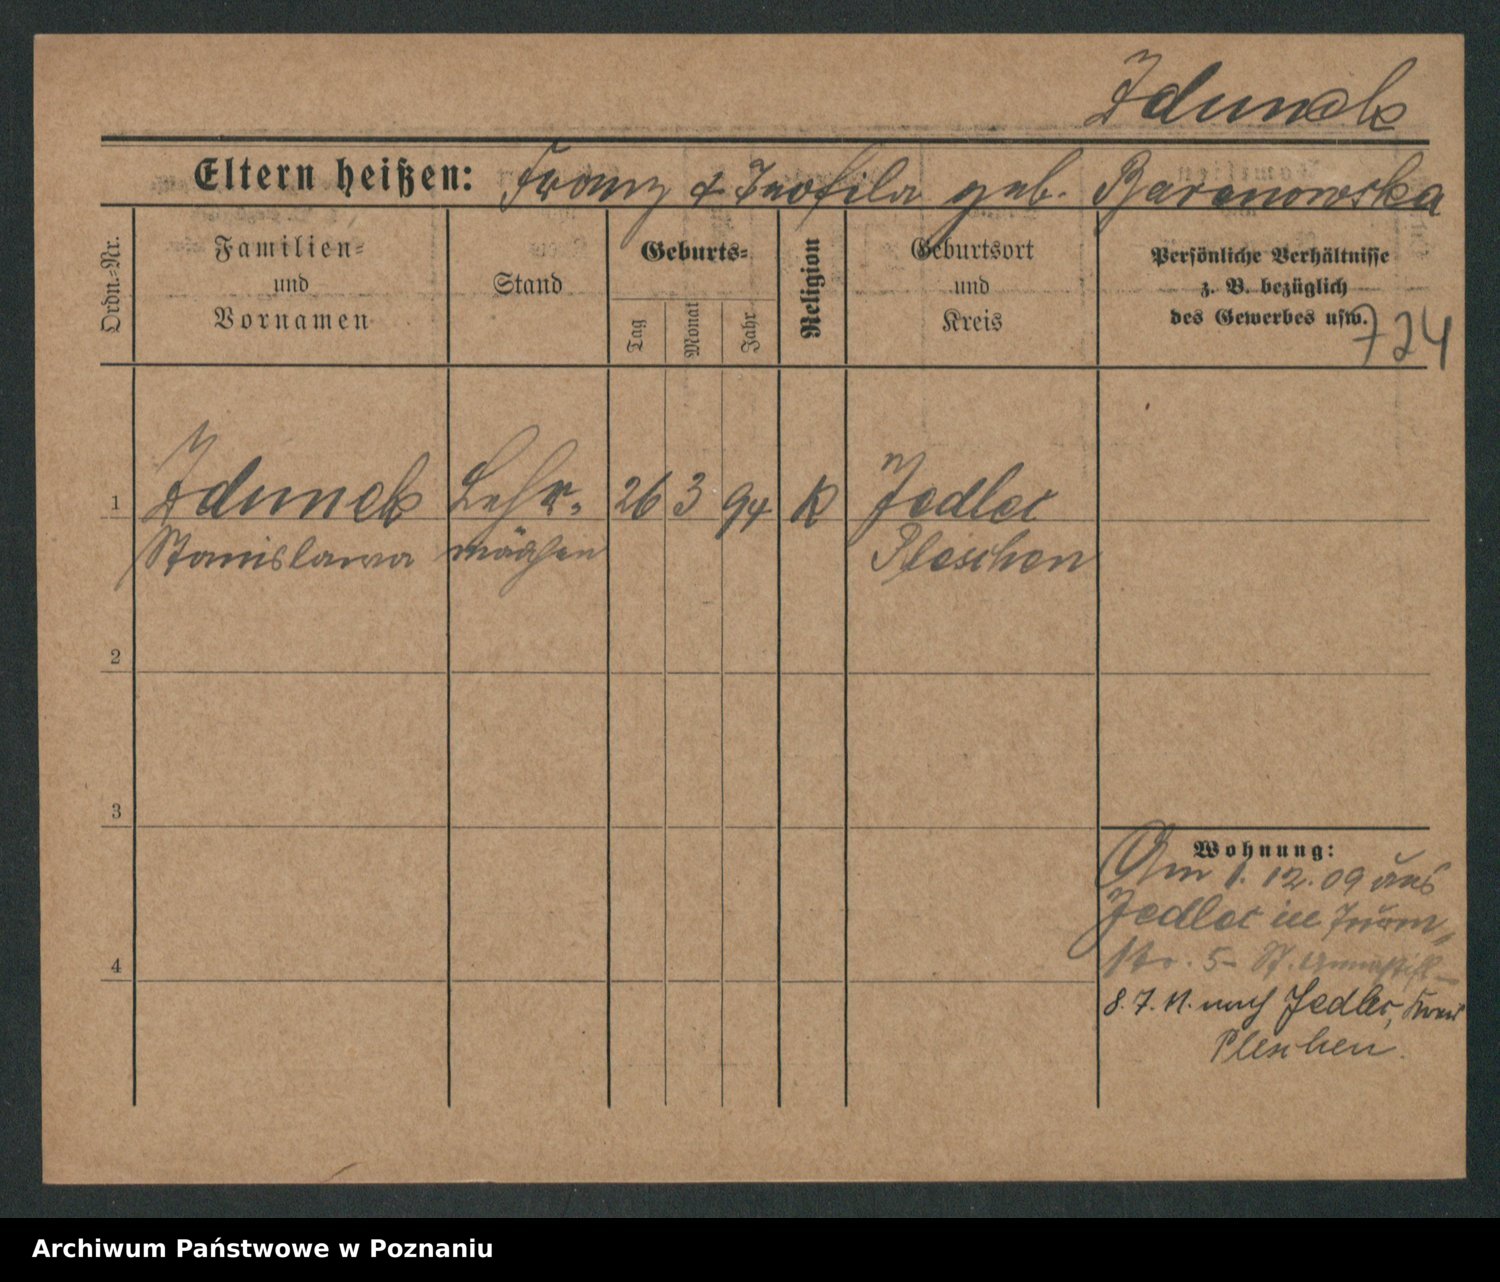 Zdunek
Eltern heißen: Franz & Teofila geb. Baranowska
Ordn.-Nr.
Familien-
und
Vornamen
Stand
Geburts-
Tag
Monat
Jahr
Religion
Geburtsort
und
Kreis
Persönliche Verhältnisse
z. B. bezüglich
des Gewerbes usw.
724
1 Zdunek Lehr- 26 3 94 K Jedlec
Stanislawa mädchen Pleschen
2
3
Wohnung:
Am 1. 12. 09 aus
Jedlec in
str. 5
4
8. 7. 11. nach Jedlec, Kreis
Pleschen.
Archiwum Państwowe w Poznaniu